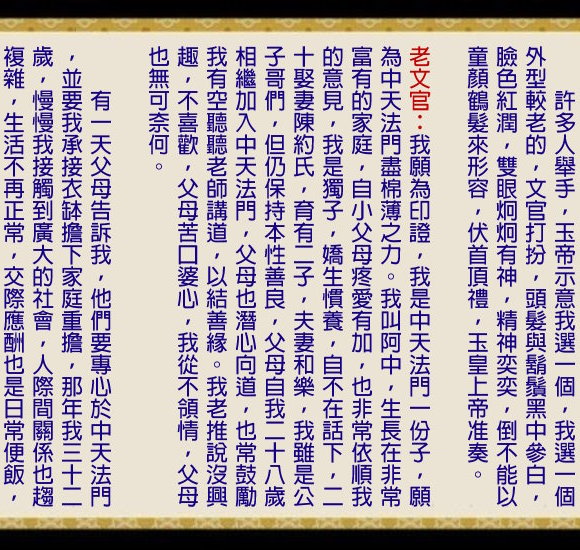 許多人舉手，玉帝示意我選一個，我選一個
外型較老的，文官打扮，頭髮與鬍鬚黑中參白，
臉色紅潤，雙眼炯炯有神，精神奕奕，倒不能以
童顏鶴髮來形容，伏首頂禮，玉皇上帝准奏。
老文官：我願為印證，我是中天法門一份子，願
為中天法門盡棉薄之力。我叫阿中，生長在非常
富有的家庭，自小父母疼愛有加，也非常依順我
的意見，我是獨子，嬌生慣養，自不在話下，二
十娶妻陳約氏，育有二子，夫妻和樂，我雖是公
子哥們，但仍保持本性善良，父母自我二十八歲
相繼加入中天法門，父母也潛心向道，也常鼓勵
我有空聽聽老師講道，以結善緣。我老推說沒興
趣，不喜歡，父母苦口婆心，我從不領情，父母
也無可奈何。
有一天父母告訴我，他們要專心於中天法門
，並要我承接衣缽擔下家庭重擔，那年我三十二
歲，慢慢我接觸到廣大的社會，人際間關係也趨
複雜，生活不再正常，交際應酬也是日常便飯，